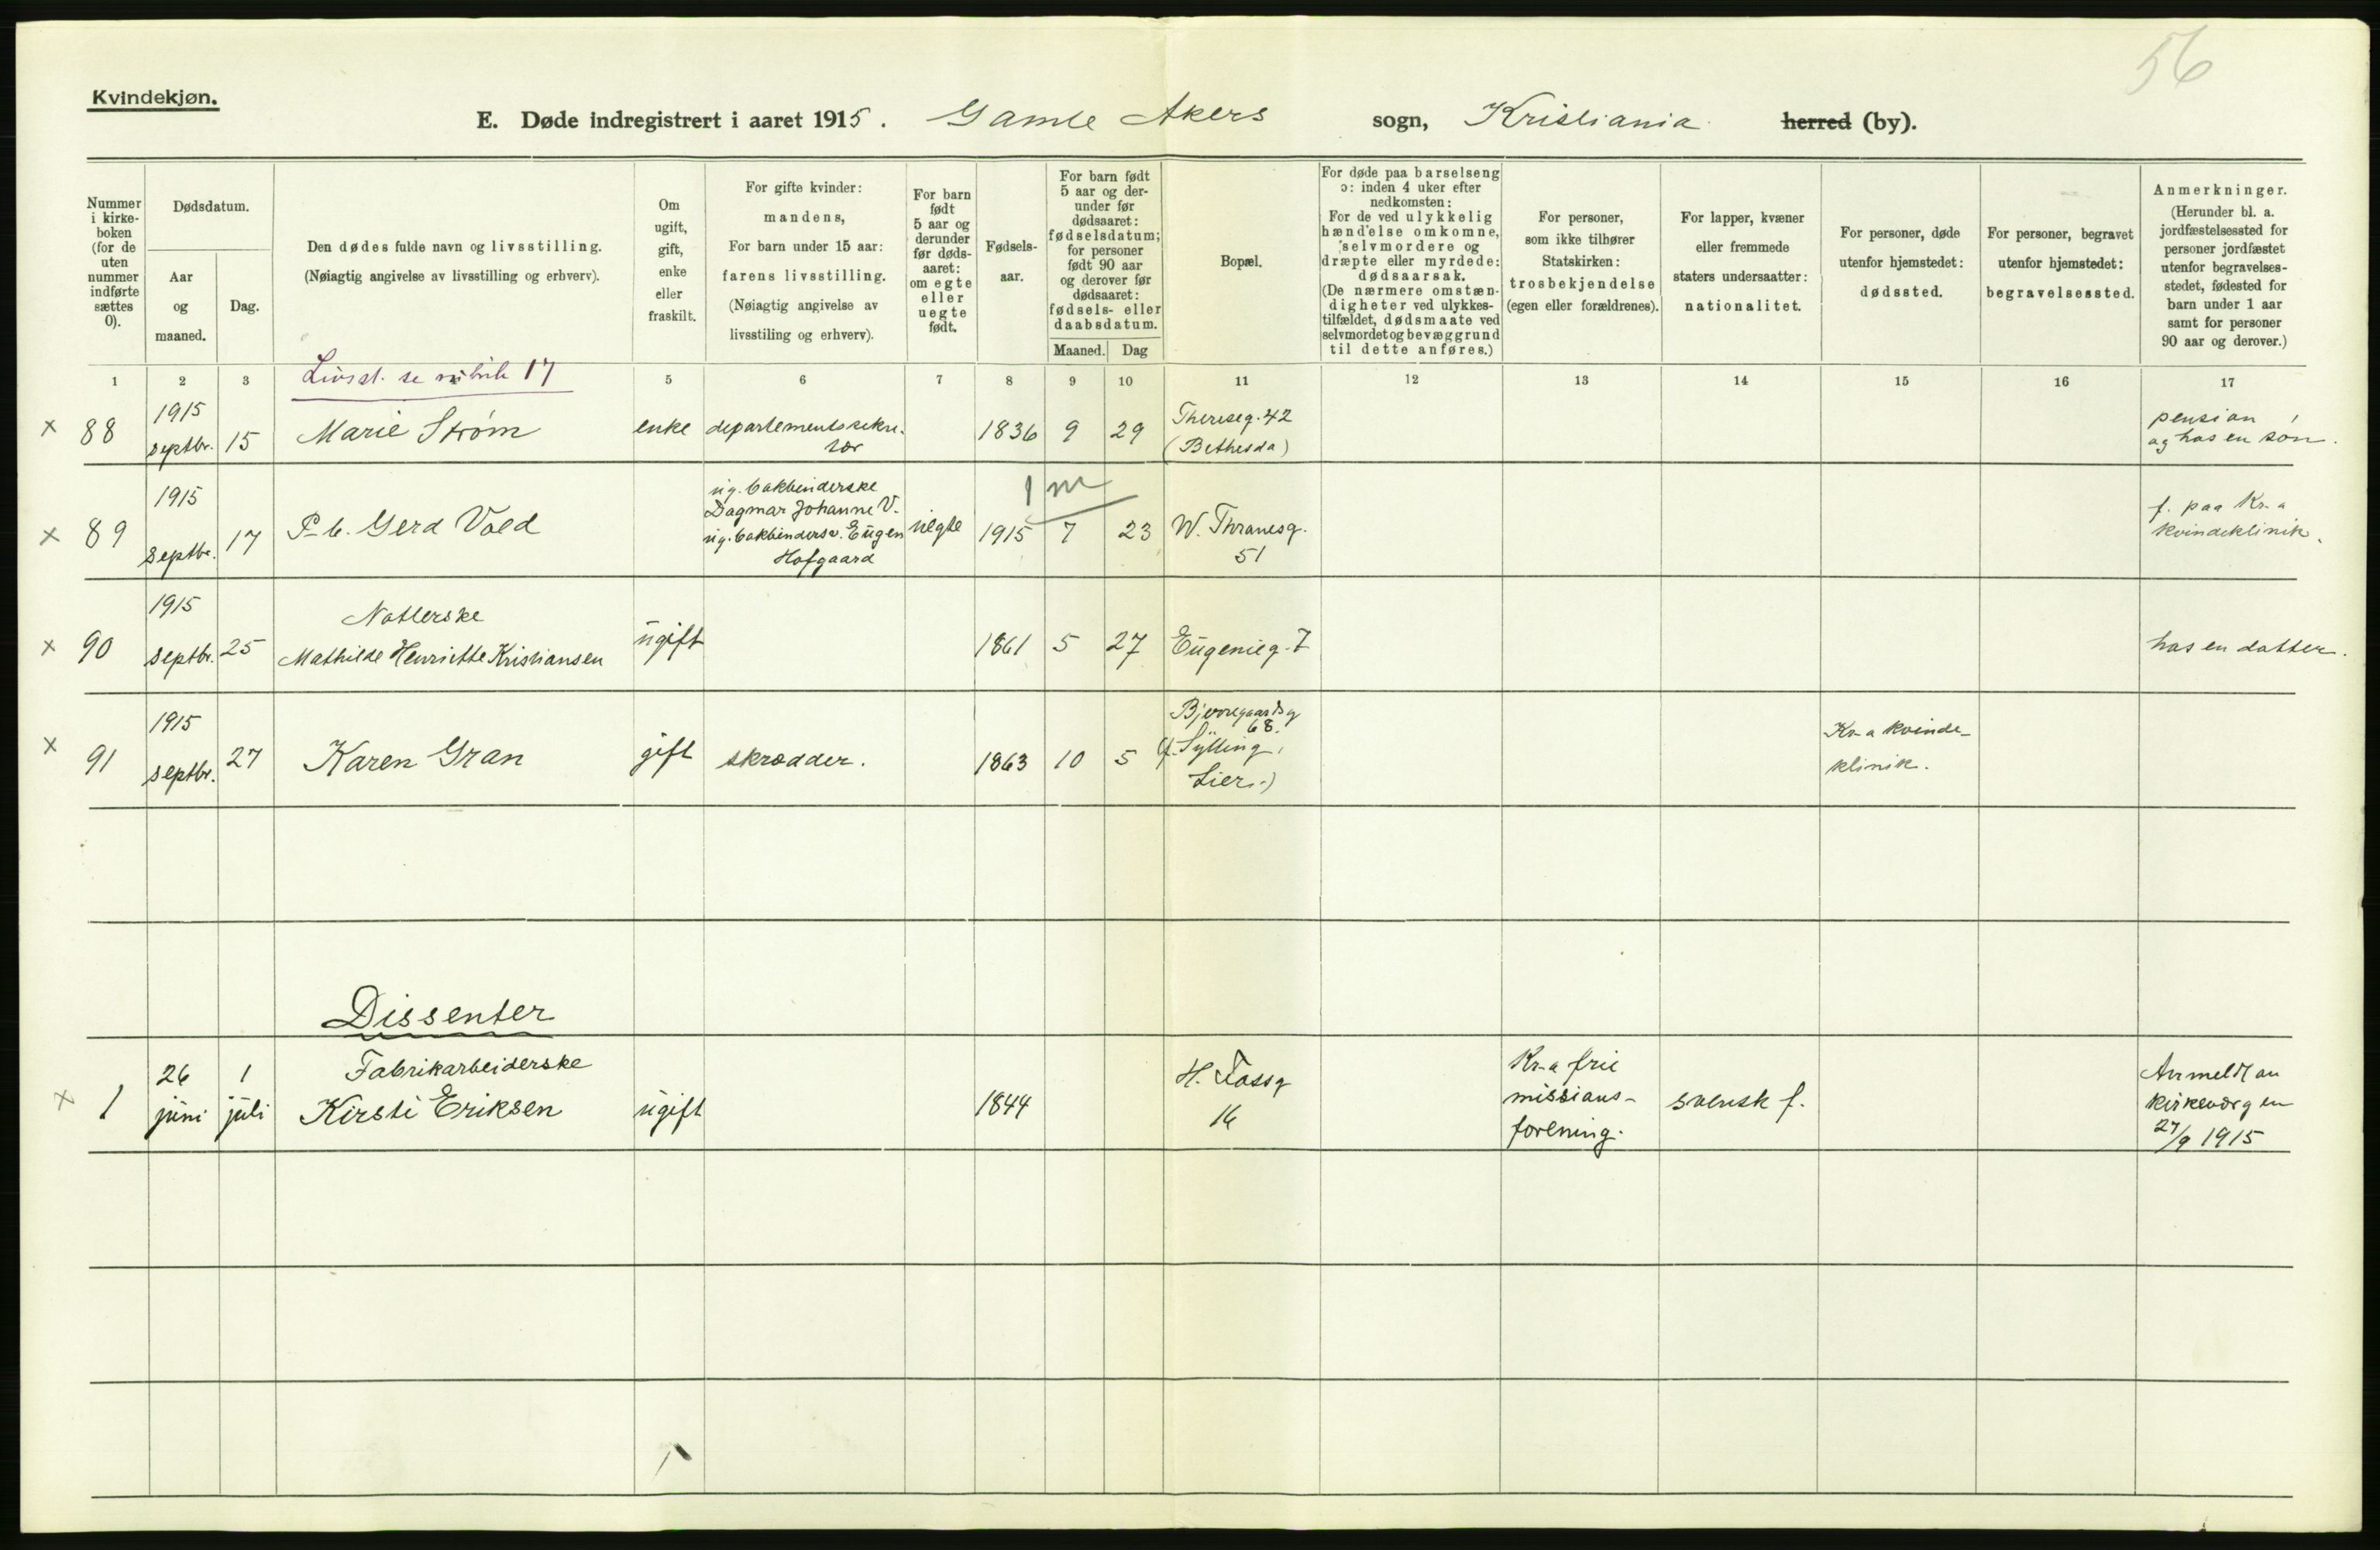 56
Kvindekjøn.
E. Døde indregistrert i aaret 1915. Gamle Akers sogn, Kristiania herred (by).
Nummer
i kirke-
boken
(for de
uten
nummer
indførte
sættes
0).
Dødsdatum.
Aar
og
maaned.
Dag.
Den dødes fulde navn og livsstilling.
(Nøiagtig angivelse av livsstilling og erhverv).
Om
ugift,
gift,
enke
eller
fraskilt.
For gifte kvinder:
mandens,
For barn under 15 aar:
farens livsstilling.
(Nøiagtig angivelse av
livsstiling og erhverv).
For barn
født
5 aar og
derunder
før døds-
aaret:
om egte
eller
uegte
født.
Fødsels-
aar.
For barn født
5 aar og der-
under før
dødsaaret:
fødselsdatum;
for personer
født 90 aar
og derover før
dødsaaret:
fødsels- eller
daabsdatum.
Maaned. Dag
Bopæl.
For døde paa barselseng
ɔ: inden 4 uker efter
nedkomsten:
For de ved ulykkelig
hændelse omkomne,
selvmordere og
dræpte eller myrdede:
dødsaarsak.
(De nærmere omstæn-
digheter ved ulykkes-
tilfældet, dødsmaate ved
selvmordet og bevæggrund
til dette anføres.)
For personer,
som ikke tilhører
Statskirken:
trosbekjendelse
(egen eller forældrenes).
For lapper, kvæner
eller fremmede
staters undersaatter:
nationalitet.
For personer, døde
utenfor hjemstedet:
dødssted.
For personer, begravet
utenfor hjemstedet:
begravelsessted.
Anmerkninger.
(Herunder bl. a.
jordfæstelsessted for
personer jordfæstet
utenfor begravelses-
stedet, fødested for
barn under 1 aar
samt for personer
90 aar og derover.)
1 2 3 Livsst. se rubrik 17 5 6 7 8 9 10 11 12 13 14 15 16 17
x 88
1915
septbr. 15
Marie Strøm
enke
departementssekre-
tær
1836 9 29
Thereseg. 42
(Bethesda)
pension,
og hos en søn.
x 89
1915
septbr. 17
P-b. Gerd Vold
ug. bokbinderske
Dagmar Johanne V.
ug. bokbindersv. Eugen
Hofgaard
uegte
1 m
1915 7 23
W. Thranesg.
51
f. paa Kr.a
kvindeklinik.
x 90
1915
septbr. 25
Natlerske
Mathilde Henriette Kristiansen
ugift
1861 5 27
Eugenieg. 7
hos en datter.
x 91
1915
septbr. 27
Karen Gran
gift
skrædder.
1863 10 5
Bjerregaardsg
68.
(f. Sylling,
Lier.)
Kr-a kvinde-
klinik.
Dissenter
x 1
26 1
juni juli
Fabrikarbeiderske
Kirsti Eriksen
ugift
1844
H. Fossg
16
Kr-a frie
missions-
forening.
svensk f.
Anmeldt av
kirkevergen
27/9 1915